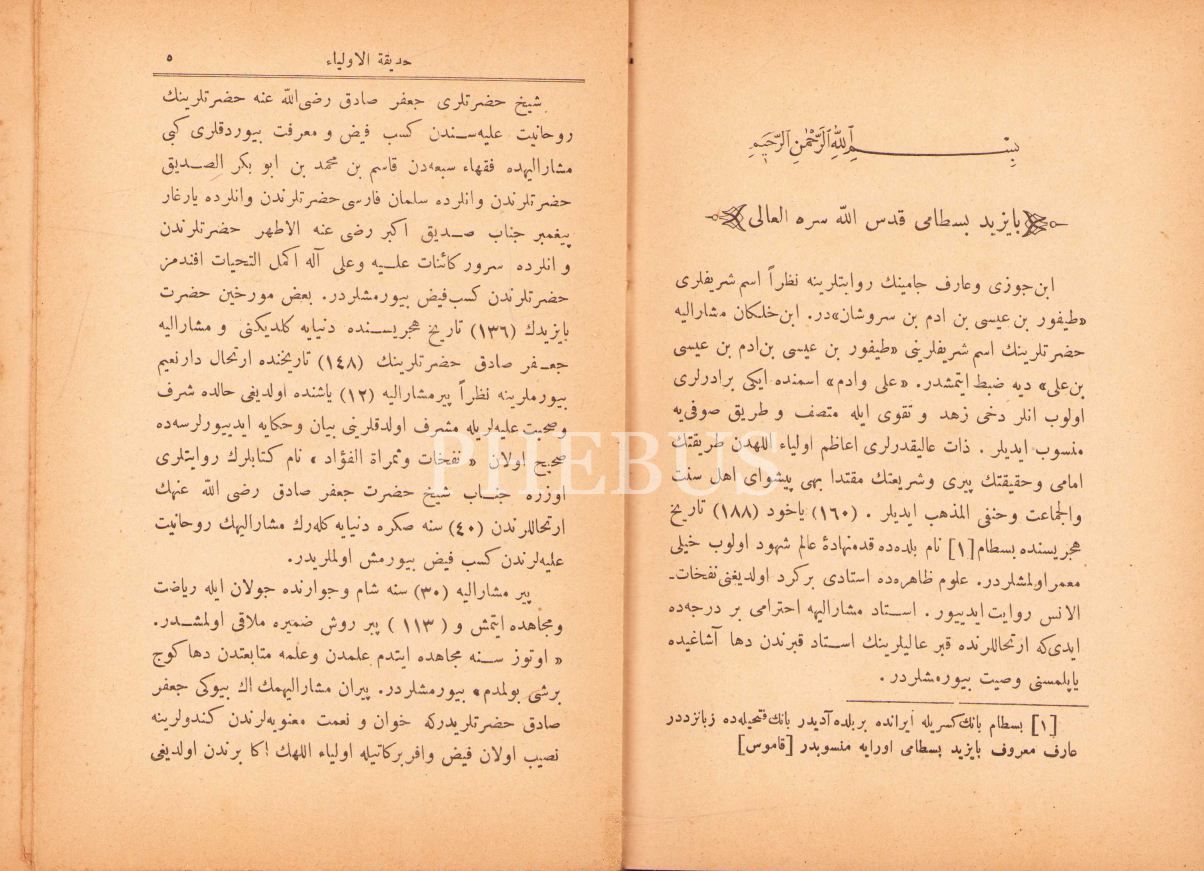 بسم الله الرحمن الرحيم
بايزيد بسطامى قدس الله سره العالى
ابن جوزى وعارف جامينك روايتلرينه نظراً اسم شريفلرى
«طيفور بن عيسى بن ادم بن سروشان»در. ابن خلكان مشاراليه
حضرتلرينك اسم شريفلرينى «طيفور بن عيسى بن ادم بن عيسى
بن على» ديه ضبط ايتمشدر. «على وادم» اسمنده ايكى برادرلرى
اولوب انلر دخى زهد و تقوى ايله متصف و طريق صوفى يه
منسوب ايديلر . ذات عاليقدرلرى اعاظم اولياء اللهدن طريقتك
امامى وحقيقتك پيرى وشريعتك مقتدا بهى پيشواى اهل سنت
والجماعت وحنفى المذهب ايديلر . (١٦٠) ياخود (١٨٨) تاريخ
هجريسنده بسطام [١] نام بلده ده قدمنهادۀ عالم شهود اولوب خيلى
معمر اولمشلردر. علوم ظاهره ده استادى بر كرد اولديغنى نفحات-
الانس روايت ايدييور . استاد مشاراليهه احترامى بر درجه ده
ايدى كه ارتحاللرنده قبر عاليلرينك استاد قبرندن دها آشاغيده
ياپلمسنى وصيت بيورمشلردر .
[١] بسطام بانك كسريله ايرانده بر بلده آديدر بانك فتحيله ده زبانزددر
عارف معروف بايزيد بسطامى اورايه منسوبدر [قاموس]
حديقة الاولياء ٥
شيخ حضرتلرى جعفر صادق رضى الله عنه حضرتلرينك
روحانيت عليه سندن كسب فيض و معرفت بيوردقلرى كبى
مشاراليهده فقهاء سبعه دن قاسم بن محمد بن ابو بكر الصديق
حضرتلرندن وانلرده سلمان فارسى حضرتلرندن وانلرده يارغار
پيغمبر جناب صديق اكبر رضى عنه الاطهر حضرتلرندن
و انلرده سرور كائنات عليه وعلى آله اكمل التحيات افندمز
حضرتلرندن كسب فيض بيورمشلردر. بعض مورخين حضرت
بايزيدك (١٣٦) تاريخ هجريسنده دنيايه كلديكنى و مشاراليه
جعفر صادق حضرتلرينك (١٤٨) تاريخنده ارتحال دارنعيم
بيورملرينه نظراً پير مشاراليه (١٢) ياشنده اولديغى حالده شرف
وصحبت عليه لريله مشرف اولدقلرينى بيان وحكايه ايدييورلرسه ده
صحيح اولان « نفحات وثمراة الفؤاد » نام كتابلرك روايتلرى
اوزره جناب شيخ حضرت جعفر صادق رضى الله عنهك
ارتحاللرندن (٤٠) سنه صكره دنيايه كله رك مشاراليهك روحانيت
عليه لرندن كسب فيض بيورمش اولملريدر.
پير مشاراليه (٣٠) سنه شام وجوارنده جولان ايله رياضت
ومجاهده ايتمش و ( ١١٣ ) پير روش ضميره ملاقى اولمشدر.
« اوتوز سنه مجاهده ايتدم علمدن وعلمه متابعتدن دها كوج
برشى بولمدم » بيورمشلردر. پيران مشاراليهمك اك بيوكى جعفر
صادق حضرتلريدركه خوان و نعمت معنويه لرندن كندولرينه
نصيب اولان فيض وافر بركاتيله اولياء اللهك اكا برندن اولديغى
PHEBUS